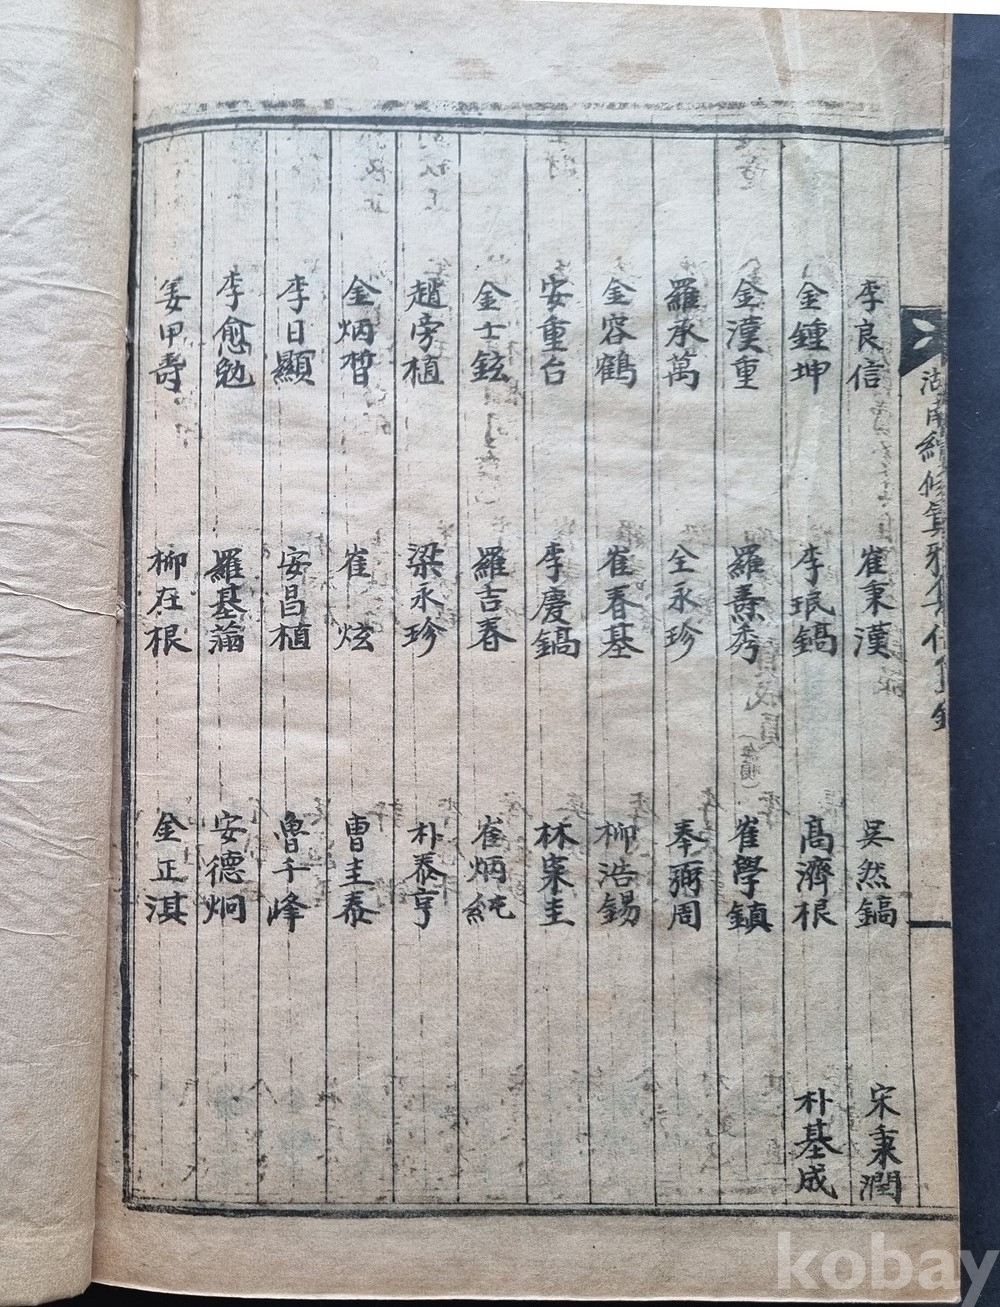 李良信 崔秉漢 吳然鎬 宋秉潤
金鍾坤 李珉鎬 高濟根 朴基成
金漢重 羅燾秀 崔學鎮
羅承萬 全永珍 奉弼周
金容鶴 崔春基 柳浩錫
安重台 李慶鎬 林宲圭
金士鉉 羅吉春 崔炳純
趙寄植 梁永珍 朴泰亨
金炳晳 崔炫 曹圭泰
李日顯 安昌植 魯千峰
李愈勉 羅基 安德炯
姜甲壽 柳在根 金正淇
湖南 
kobay